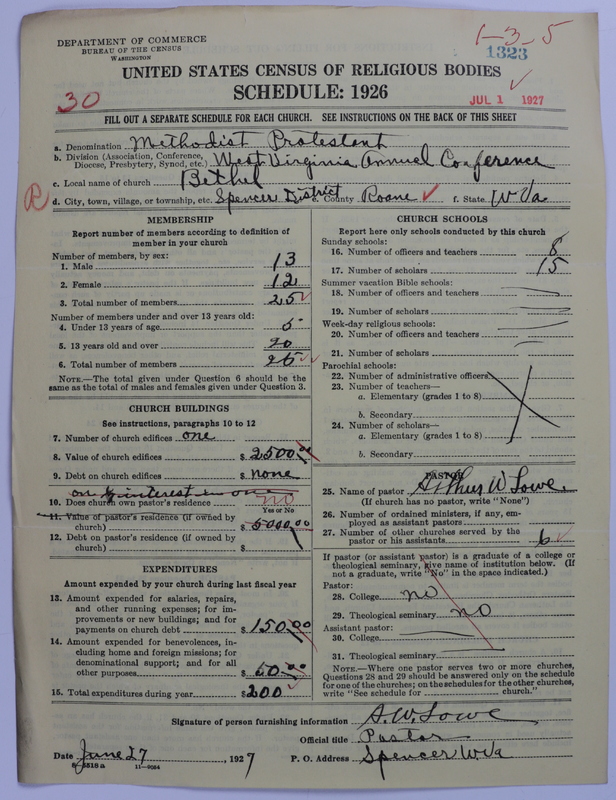 DEPARTMENT OF COMMERCE
BUREAU OF THE CENSUS
WASHINGTON
1-3 5
1323
UNITED STATES CENSUS OF RELIGIOUS BODIES
SCHEDULE: 1926
30
JUL 1 1927
FILL OUT A SEPARATE SCHEDULE FOR EACH CHURCH. SEE INSTRUCTIONS ON THE BACK OF THIS SHEET
a. Denomination Methodist Protestant
b. Division (Association, Conference, Diocese, Presbytery, Synod, etc.) West Virginia Annual Conference
c. Local name of church Bethel
R d. City, town, village, or township, etc. Spencer District e. County Roane f. State W Va
MEMBERSHIP
Report number of members according to definition of
member in your church
Number of members, by sex:
1. Male 13
2. Female 12
3. Total number of members 25
Number of members under and over 13 years old:
4. Under 13 years of age 5
5. 13 years old and over 20
6. Total number of members 25
NOTE.—The total given under Question 6 should be the
same as the total of males and females given under Question 3.
CHURCH BUILDINGS
See instructions, paragraphs 10 to 12
7. Number of church edifices one
8. Value of church edifices $ 2500.00
9. Debt on church edifices $ none
10. Does church own pastor's residence no
Yes or No
11. Value of pastor's residence (if owned by
church) $ 5000.00
12. Debt on pastor's residence (if owned by
church) $
EXPENDITURES
Amount expended by your church during last fiscal year
13. Amount expended for salaries, repairs,
and other running expenses; for im-
provements or new buildings; and for
payments on church debt $ 150.00
14. Amount expended for benevolences, in-
cluding home and foreign missions; for
denominational support; and for all
other purposes $ 50.00
15. Total expenditures during year $ 200
CHURCH SCHOOLS
Report here only schools conducted by this church
Sunday schools:
16. Number of officers and teachers 8
17. Number of scholars 15
Summer vacation Bible schools:
18. Number of officers and teachers
19. Number of scholars
Week-day religious schools:
20. Number of officers and teachers
21. Number of scholars
Parochial schools:
22. Number of administrative officers
23. Number of teachers—
a. Elementary (grades 1 to 8)
b. Secondary
24. Number of scholars—
a. Elementary (grades 1 to 8)
b. Secondary
PASTOR
25. Name of pastor Arthur W Lowe
(If church has no pastor, write "None")
26. Number of ordained ministers, if any, em-
ployed as assistant pastors
27. Number of other churches served by the
pastor or his assistants 6
If pastor (or assistant pastor) is a graduate of a college or
theological seminary, give name of institution below. (If
not a graduate, write "No" in the space indicated.)
Pastor:
28. College no
29. Theological seminary no
Assistant pastor:
30. College
31. Theological seminary
NOTE.—Where one pastor serves two or more churches,
Questions 28 and 29 should be answered only on the schedule
for one of the churches; on the schedules for the other churches,
write "See schedule for church."
Signature of person furnishing information A. W. Lowe
Official title Pastor
Date June 27, 1927 P. O. Address Spencer W Va
8—5518 a 11—9084